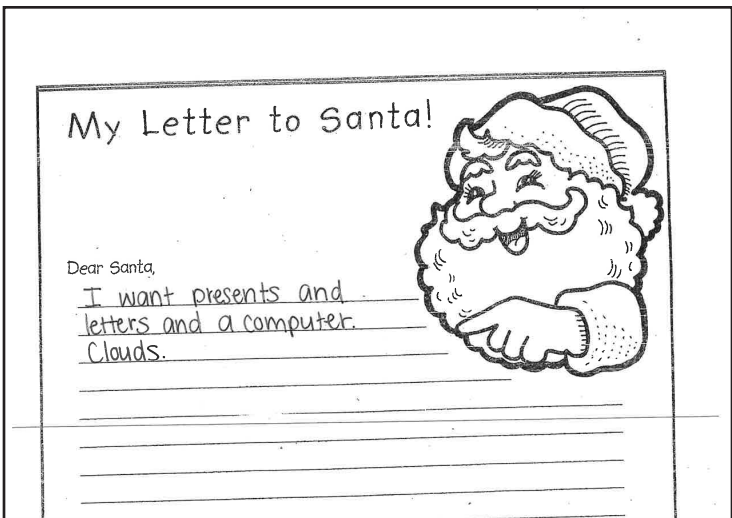 My Letter to Santa!
Dear Santa,
I want presents and
letters and a computer.
Clouds.